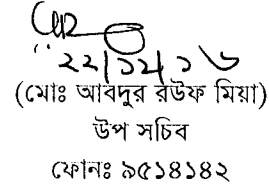 ২২/১২/১৬
(মোঃ আবদুর রউফ মিয়া)
উপ সচিব
ফোনঃ ৯৫১৪১৪২